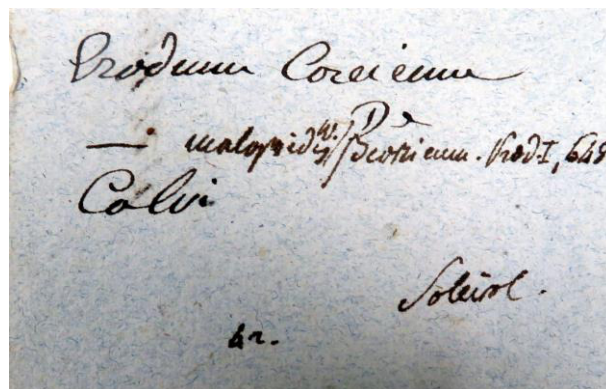 Erodium Corsicum
— malopoid. W. / β corsicum. Prod. I, 648
Calvi
Soleirol.
42.